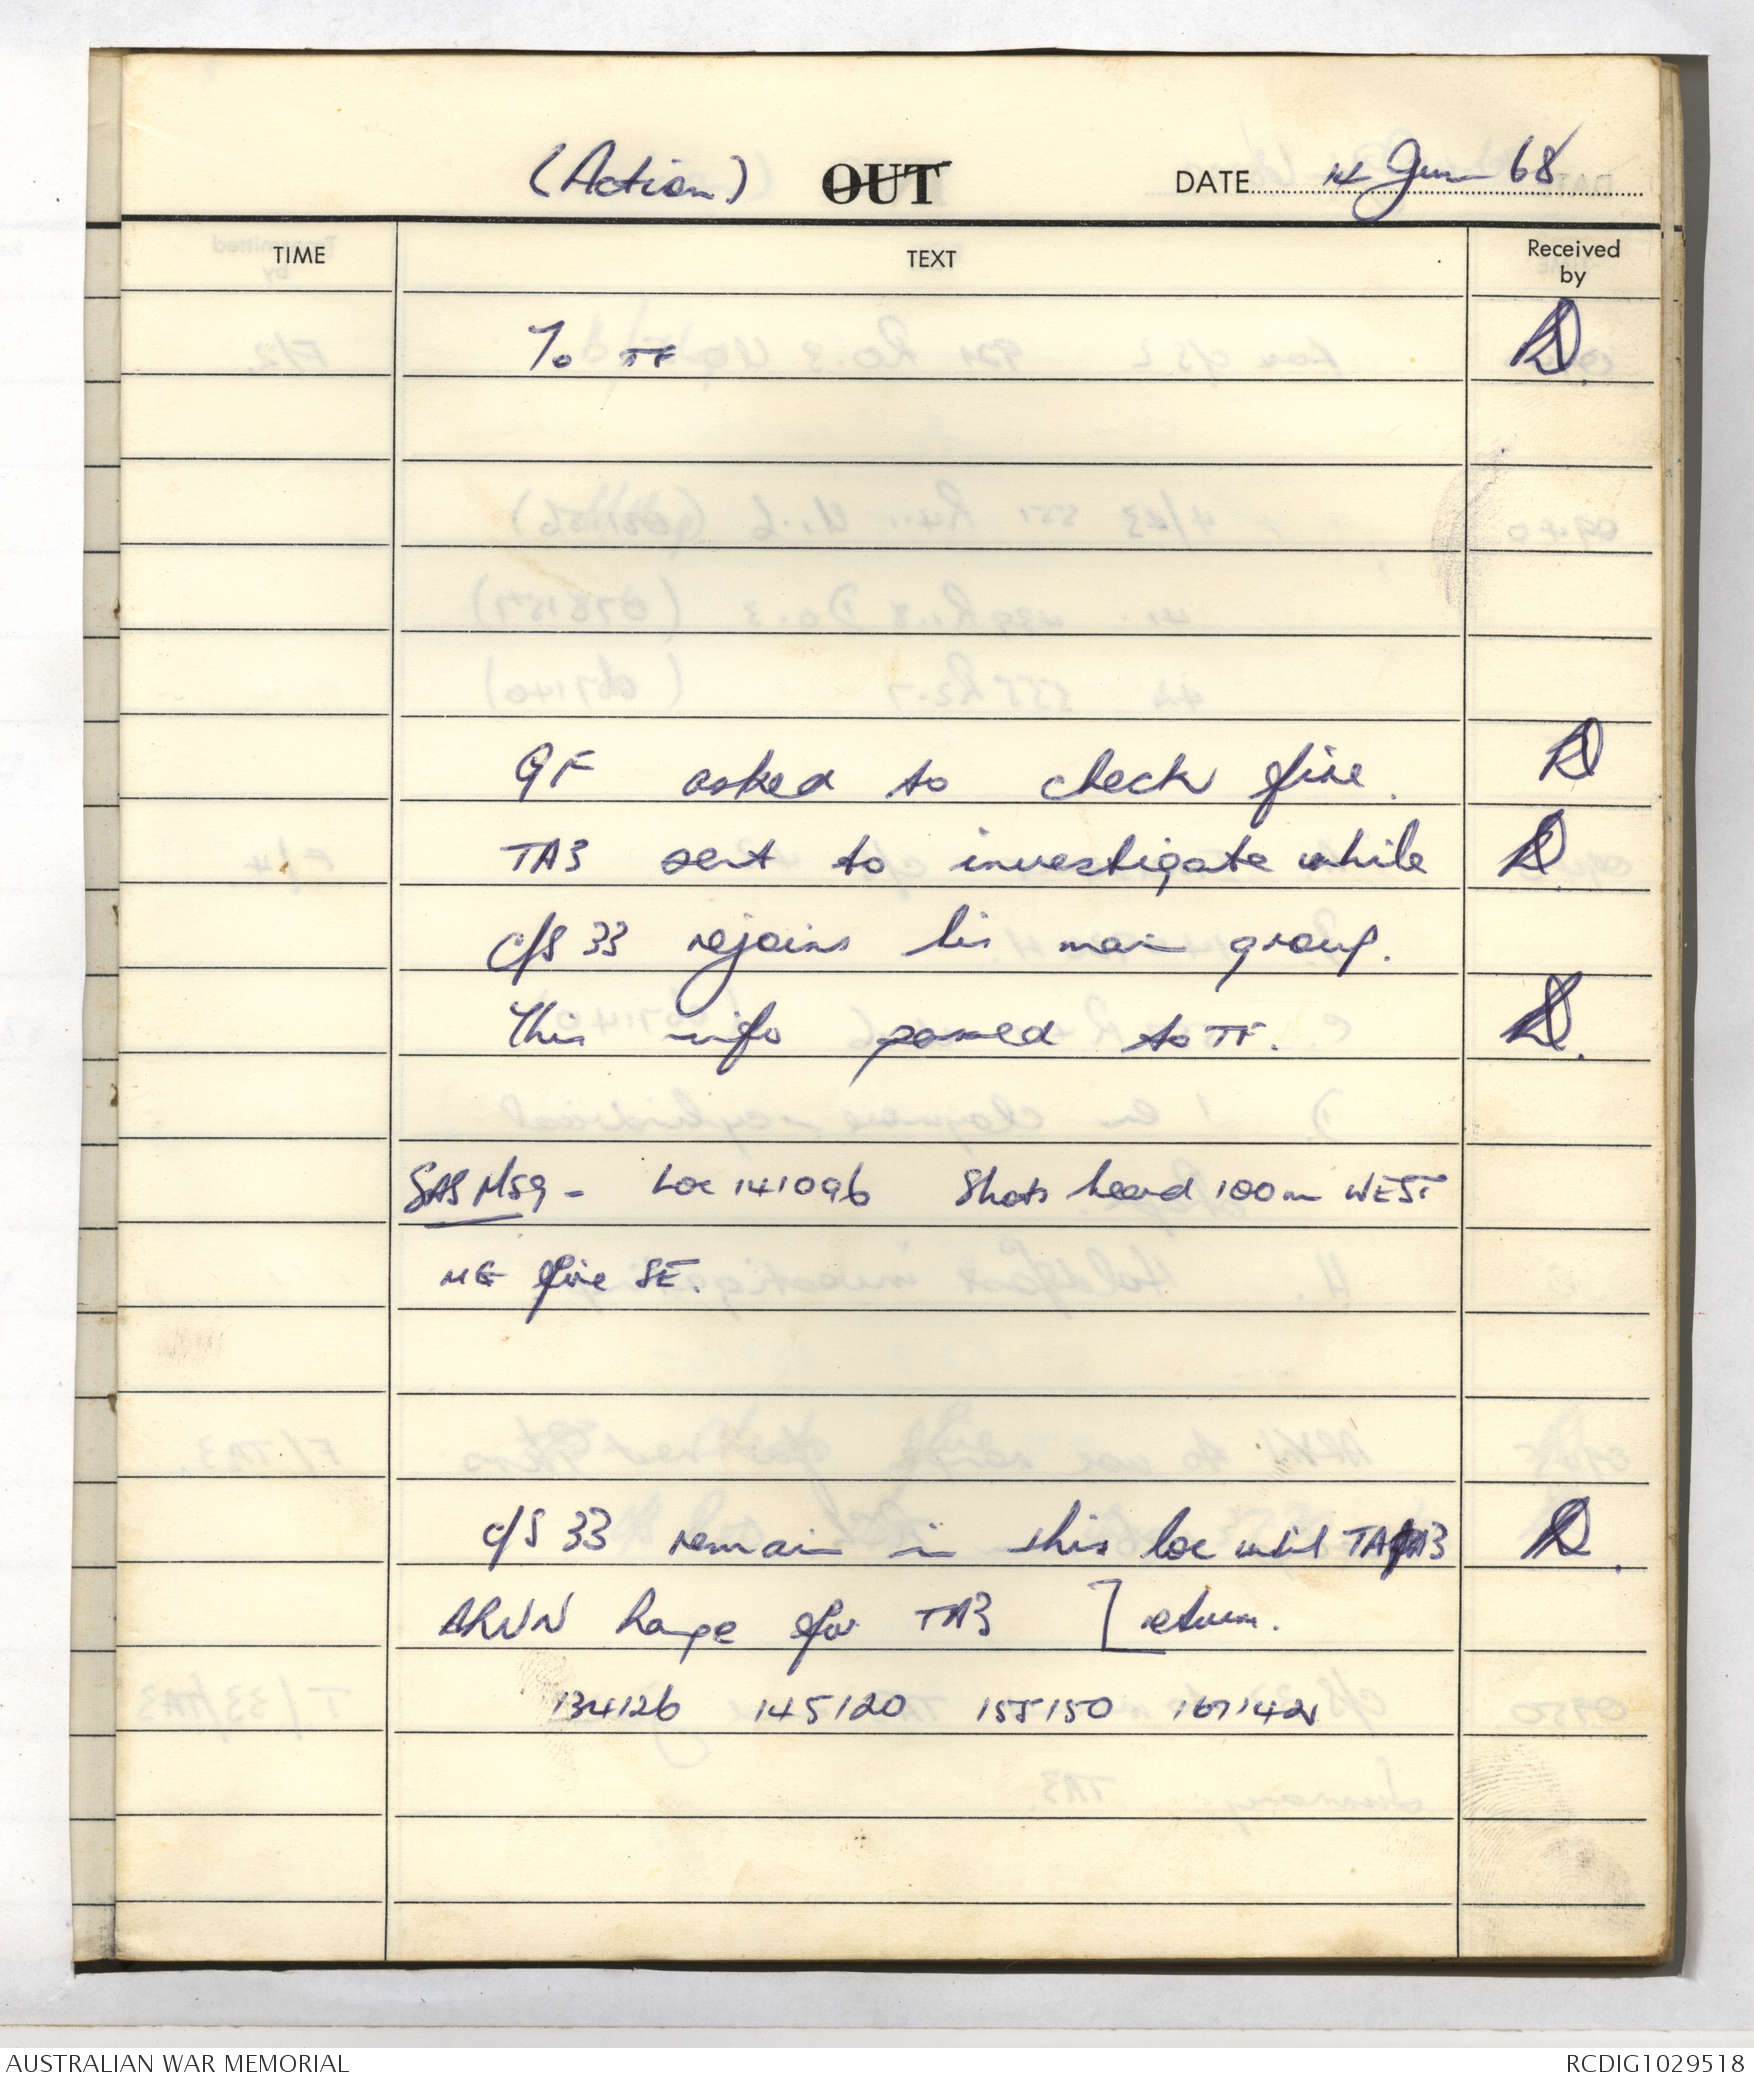 (Action) OUT DATE 14 Jun 68
TIME TEXT Received by
To TF
GF asked to check fire.
TA3 sent to investigate while
C/S 33 rejoins his main group.
This info passed to TF.
SAS Msg - Loc 141096 Shots heard 100m WEST
MG fire SE.
C/S 33 remain in this loc until TA3
ARVN Range for TA3 ] return.
134126 145120 155150 167142
AUSTRALIAN WAR MEMORIAL RCDIG1029518